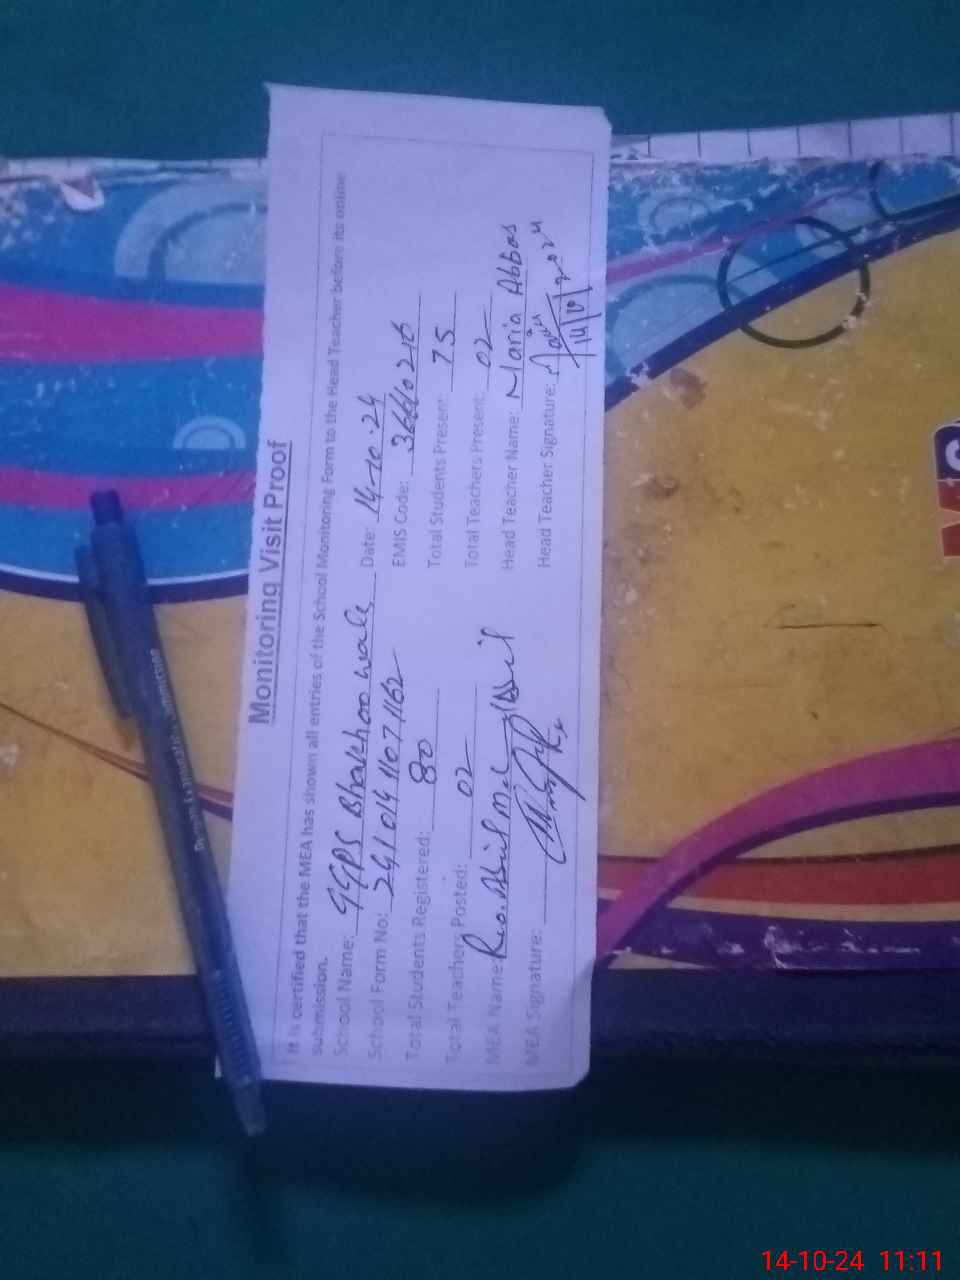 Monitoring Visit Proof
It is certified that the MEA has shown all entries of the School Monitoring Form to the Head Teacher before its online
submission.
School Name: GGPS Bhakhoo wala Date: 14-10-24
School Form No: 24101411071162 EMIS Code:
Total Students Registered: 80 Total Students Present: 75
Total Teachers Posted: 02 Total Teachers Present: 02
MEA Name: Head Teacher Name: Maria Abbas
MEA Signature: Head Teacher Signature:
14/10/2024
14-10-24 11:11